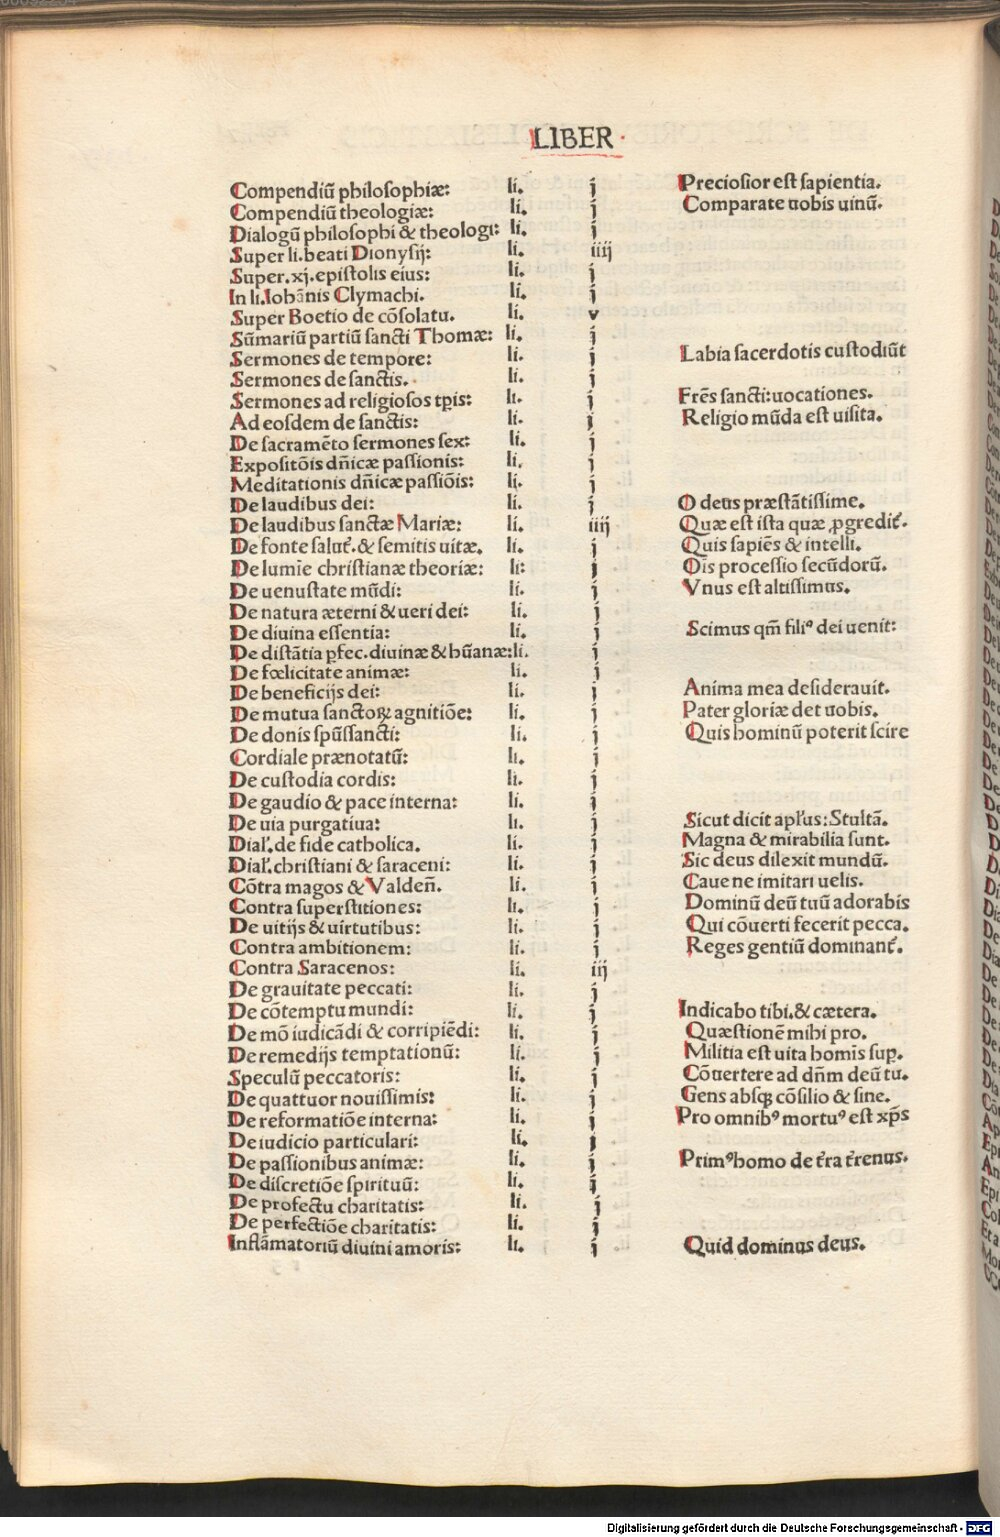 LIBER ·
Compendiū philosophiæ: li. j Preciosior est sapientia.
Compendiū theologiæ: li. j Comparate uobis uinū.
Dialogū philosophi & theologi: li. j
Super li. beati Dionysij: li. iiij
Super .xj. epistolis eius: li. j
In li. Iohānis Clymachi. li. j
Super Boetio de cōsolatu. li. v
Sūmariū partiū sancti Thomæ: li. j
Sermones de tempore: li. j Labia sacerdotis custodiūt
Sermones de sanctis. li. j
Sermones ad religiosos tp̄is: li. j Frēs sancti: uocationes.
Ad eosdem de sanctis: li. j Religio mūda est uisita.
De sacramēto sermones sex: li. j
Expositōis dn̄icæ passionis: li. j
Meditationis dn̄icæ passiōis: li. j
De laudibus dei: li. j O deus præstātissime.
De laudibus sanctæ Mariæ: li. iiij Quæ est ista quæ ꝓgredit᷑.
De fonte salut᷑. & semitis uitæ. li. j Quis sapiēs & intelli.
De lumīe christianæ theoriæ: li: j Oīs processio secūdorū.
De uenustate mūdi: li. j Vnus est altissimus.
De natura æterni & ueri dei: li. j
De diuina essentia: li. j Scimus qm̄ filiꝰ dei uenit:
De distātia ꝑfec. diuinæ & hūanæ: li. j
De fœlicitate animæ: li. j
De beneficijs dei: li. j Anima mea desiderauit.
De mutua sanctoꝝ agnitiōe: li. j Pater gloriæ det uobis.
De donis spūssancti: li. j Quis hominū poterit scire
Cordiale prænotatū: li. j
De custodia cordis: li. j
De gaudio & pace interna: li. j
De uia purgatiua: li. j Sicut dicit apl'us: Stultā.
Dial'. de fide catholica. li. j Magna & mirabilia sunt.
Dial'. christiani & saraceni: li. j Sic deus dilexit mundū.
Cōtra magos & Valdeñ. li. j Caue ne imitari uelis.
Contra superstitiones: li. j Dominū deū tuū adorabis
De uitijs & uirtutibus: li. j Qui cōuerti fecerit pecca.
Contra ambitionem: li. j Reges gentiū dominant᷑.
Contra Saracenos: li. iij
De grauitate peccati: li. j
De cōtemptu mundi: li. j Indicabo tibi. & cætera.
De mō iudicādi & corripiēdi: li. j Quæstionē mihi pro.
De remedijs temptationū: li. j Militia est uita homīs suꝑ.
Speculū peccatoris: li. j Cōuertere ad dn̄m deū tu.
De quattuor nouissimis: li. j Gens absqꝫ cōsilio & sine.
De reformatiōe interna: li. j Pro omnibꝰ mortuꝰ est xp̄s
De iudicio particulari: li. j
De passionibus animæ: li. j Primꝰ homo de t᷑ra t᷑renus.
De discretiōe spirituū: li. j
De profectu charitatis: li. j
De perfectiōe charitatis: li. j
Inflāmatoriū diuini amoris: li. j Quid dominus deus.
Digitalisierung gefördert durch die Deutsche Forschungsgemeinschaft - DFG